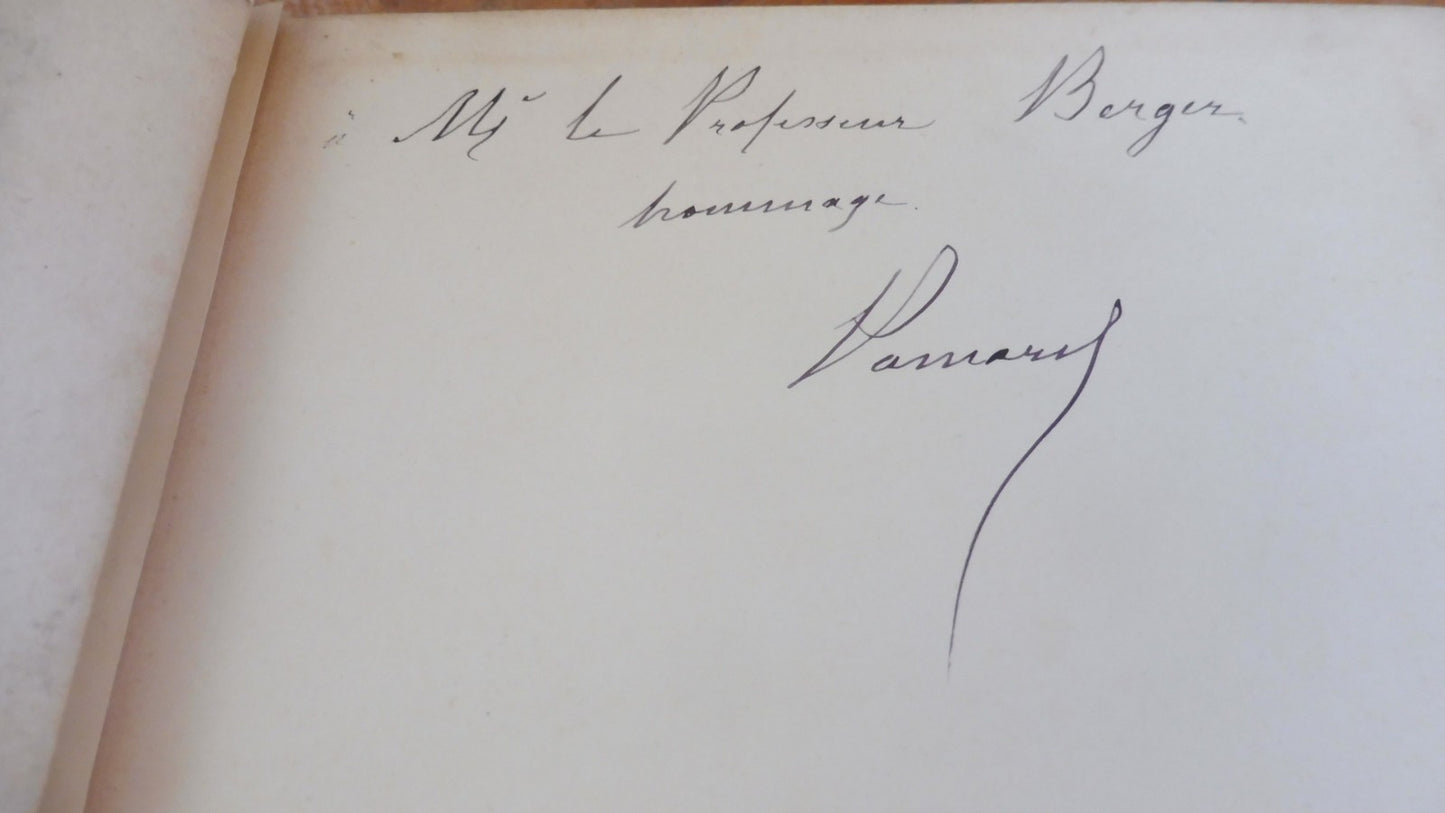 à Mr le Professeur Berger.
hommage.
Pamard